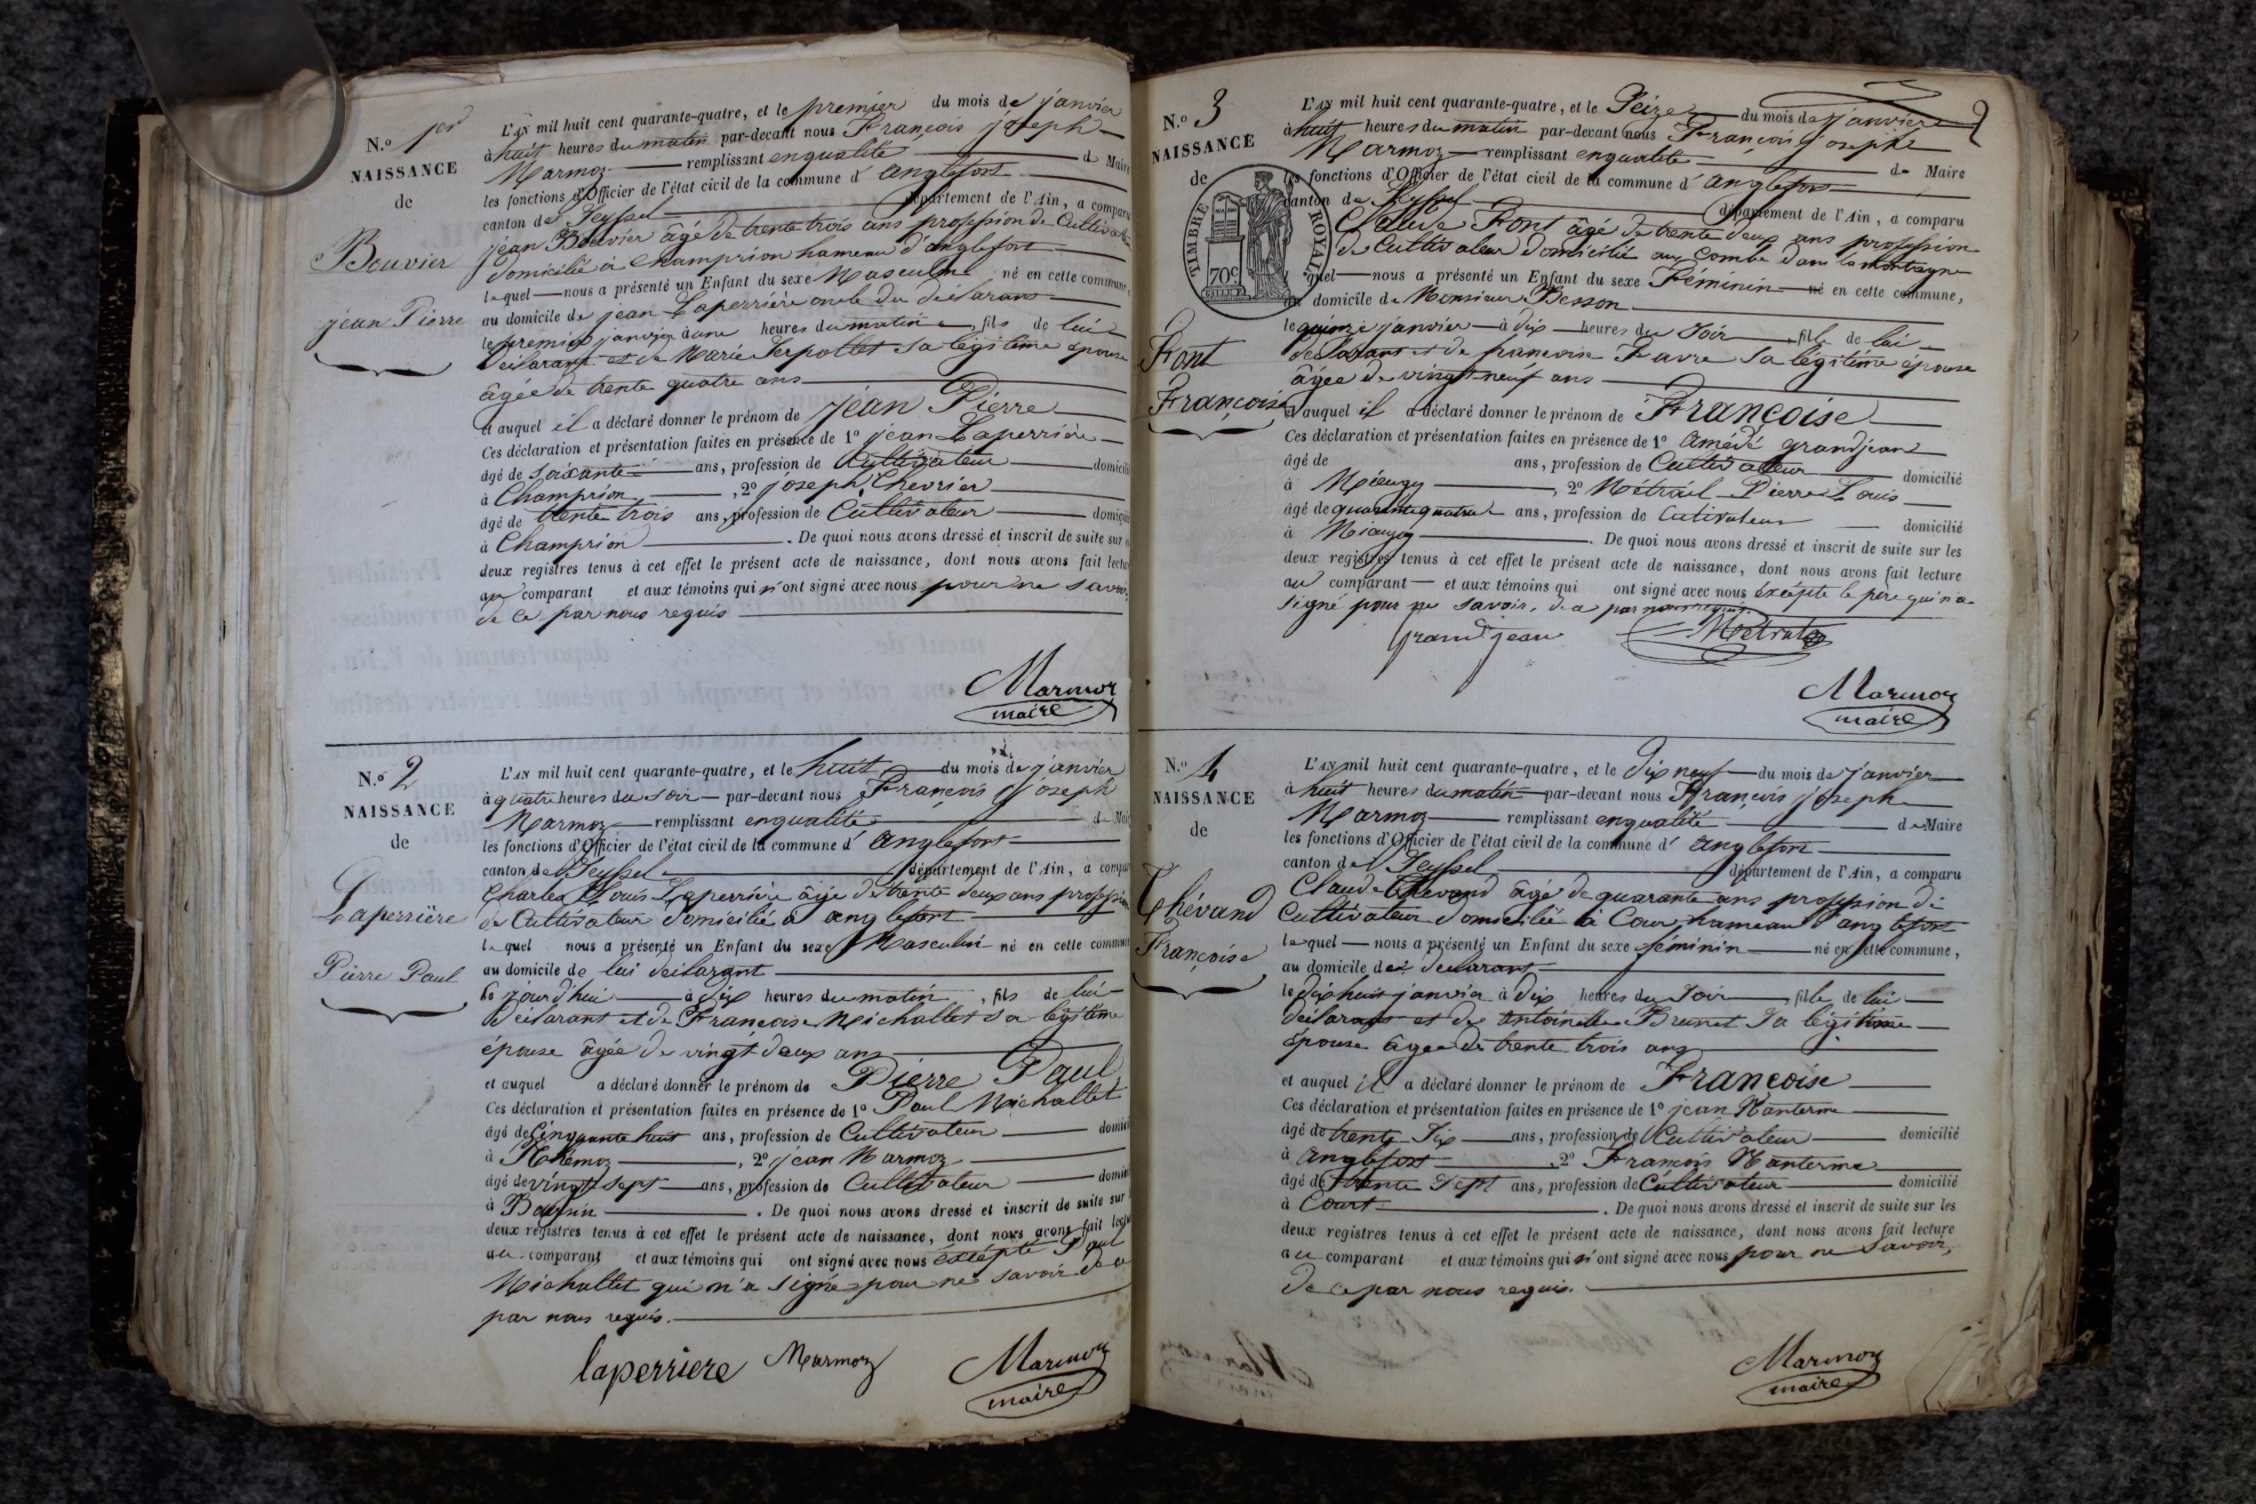 N.o 1er
NAISSANCE
de
Bouvier
jean Pierre
L'AN mil huit cent quarante-quatre, et le premier du mois de janvier
à huit heures du matin par-devant nous François joseph
Marmoz remplissant en qualité de Maire
les fonctions d'Officier de l'état civil de la commune d' anglefort
canton de Seyssel département de l'Ain, a comparu
jean Bouvier âgé de trente trois ans profession de Cultivateur
domicilié à Champrion hameau d'anglefort
lequel nous a présenté un Enfant du sexe Masculin né en cette commune,
au domicile de jean Laperrière oncle du déclarant
le premier janvier à une heures du matin, fils de lui
déclarant et de Marie Serpollet sa légitime épouse
âgée de trente quatre ans
et auquel il a déclaré donner le prénom de jean Pierre
Ces déclaration et présentation faites en présence de 1o jean Laperrière
âgé de soixante ans, profession de Cultivateur domicilié
à Champrion, 2o joseph Chevrier
âgé de trente trois ans, profession de Cultivateur domicilié
à Champrion. De quoi nous avons dressé et inscrit de suite sur
deux registres tenus à cet effet le présent acte de naissance, dont nous avons fait lecture
au comparant et aux témoins qui n'ont signé avec nous pour ne savoir,
de ce par nous requis
Marmoz
maire
N.o 2
NAISSANCE
de
Laperrière
Pierre Paul
L'AN mil huit cent quarante-quatre, et le huit du mois de janvier
à quatre heures du soir par-devant nous François joseph
Marmoz remplissant en qualité de Maire
les fonctions d'Officier de l'état civil de la commune d' anglefort
canton de Seyssel département de l'Ain, a comparu
Charles Louis Laperrière âgé de trente deux ans profession
de Cultivateur domicilié à anglefort
lequel nous a présenté un Enfant du sexe Masculin né en cette commune
au domicile de lui déclarant
le jourd'hui à dix heures du matin, fils de lui
déclarant et de Françoise Michallet sa légitime
épouse âgée de vingt deux ans
et auquel a déclaré donner le prénom de Pierre Paul
Ces déclaration et présentation faites en présence de 1o Paul Michallet
âgé de Cinquante huit ans, profession de Cultivateur domicilié
à, 2o jean Marmoz
âgé de vingt sept ans, profession de Cultivateur domicilié
à. De quoi nous avons dressé et inscrit de suite sur
deux registres tenus à cet effet le présent acte de naissance, dont nous avons fait lecture
au comparant et aux témoins qui ont signé avec nous éxcépté Paul
Michallet qui n'a signé pour ne savoir de ce
par nous requis.
laperriere Marmoz Marmoz
maire
2
N.o 3
NAISSANCE
de
TIMBRE ROYAL
70c
Font
Françoise
L'AN mil huit cent quarante-quatre, et le Seize du mois de janvier
à huit heures du matin par-devant nous François joseph
Marmoz remplissant en qualité de Maire
les fonctions d'Officier de l'état civil de la commune d' anglefort
canton de Seyssel département de l'Ain, a comparu
Claude Font âgé de trente deux ans profession
de Cultivateur domicilié au Combe dans la montagne
lequel nous a présenté un Enfant du sexe Féminin né en cette commune,
au domicile de Monsieur Besson
le quinze janvier à dix heures du Soir, fille de lui
déclarant et de francoise Favre sa légitime épouse
âgée de vingt-neuf ans
et auquel il a déclaré donner le prénom de Françoise
Ces déclaration et présentation faites en présence de 1o amédé grandjean
âgé de ans, profession de Cultivateur domicilié
à, 2o Métrail Pierre Louis
âgé de quarante quatre ans, profession de Cutivateur domicilié
à. De quoi nous avons dressé et inscrit de suite sur les
deux registres tenus à cet effet le présent acte de naissance, dont nous avons fait lecture
au comparant et aux témoins qui ont signé avec nous éxcépté le père qui n'a
signé pour ne savoir, de ce par nous requis.
grand jean
Marmoz
maire
N.o 4
NAISSANCE
de
Thévand
Françoise
L'AN mil huit cent quarante-quatre, et le dix neuf du mois de janvier
à huit heures du matin par-devant nous François joseph
Marmoz remplissant en qualité de Maire
les fonctions d'Officier de l'état civil de la commune d' anglefort
canton de Seyssel département de l'Ain, a comparu
Claude Thévand âgé de quarante ans profession de
Cultivateur domicilié à Cour hameau d'anglefort
lequel nous a présenté un Enfant du sexe féminin né en cette commune,
au domicile de déclarant
le dix huit janvier à dix heures du Soir, fille de lui
déclarant et de antoinette Brunet sa légitime
épouse âgée de trente trois ans
et auquel il a déclaré donner le prénom de Françoise
Ces déclaration et présentation faites en présence de 1o jean Manterme
âgé de trente Six ans, profession de Cultivateur domicilié
à anglefort, 2o François Manterme
âgé de trente Sept ans, profession de Cultivateur domicilié
à Court. De quoi nous avons dressé et inscrit de suite sur les
deux registres tenus à cet effet le présent acte de naissance, dont nous avons fait lecture
au comparant et aux témoins qui n'ont signé avec nous pour ne savoir,
de ce par nous requis.
Marmoz
maire